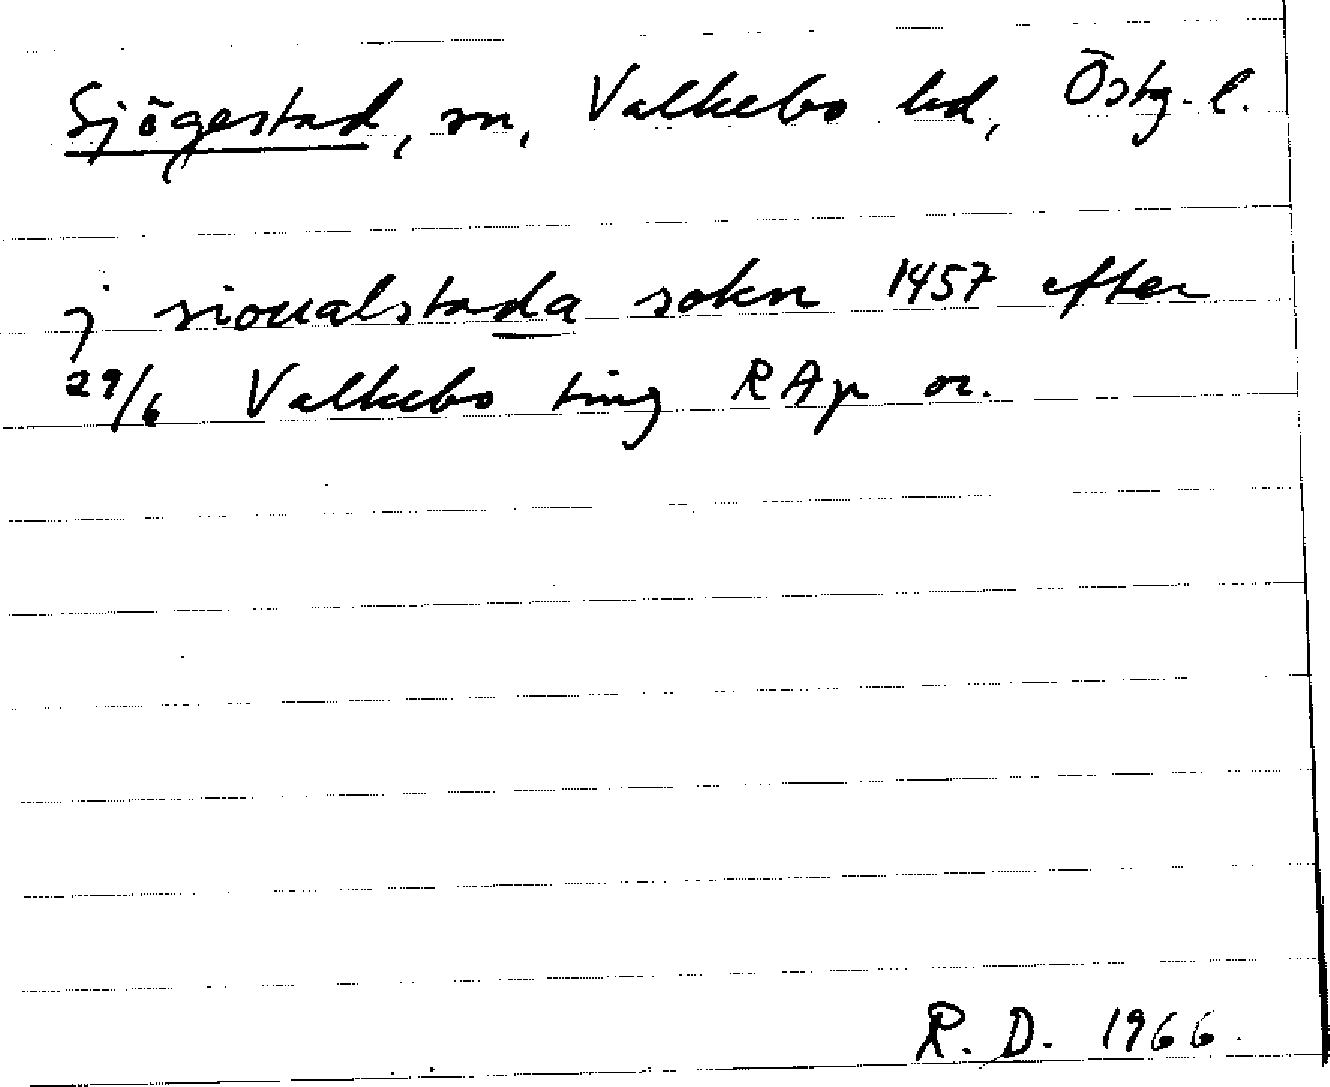 Sjögestad, sn, Valkebo hd, Östg. l.
j sioualstada sokn 1457 efter
29/6 Valkebo ting RAp or.
R. D. 1966.